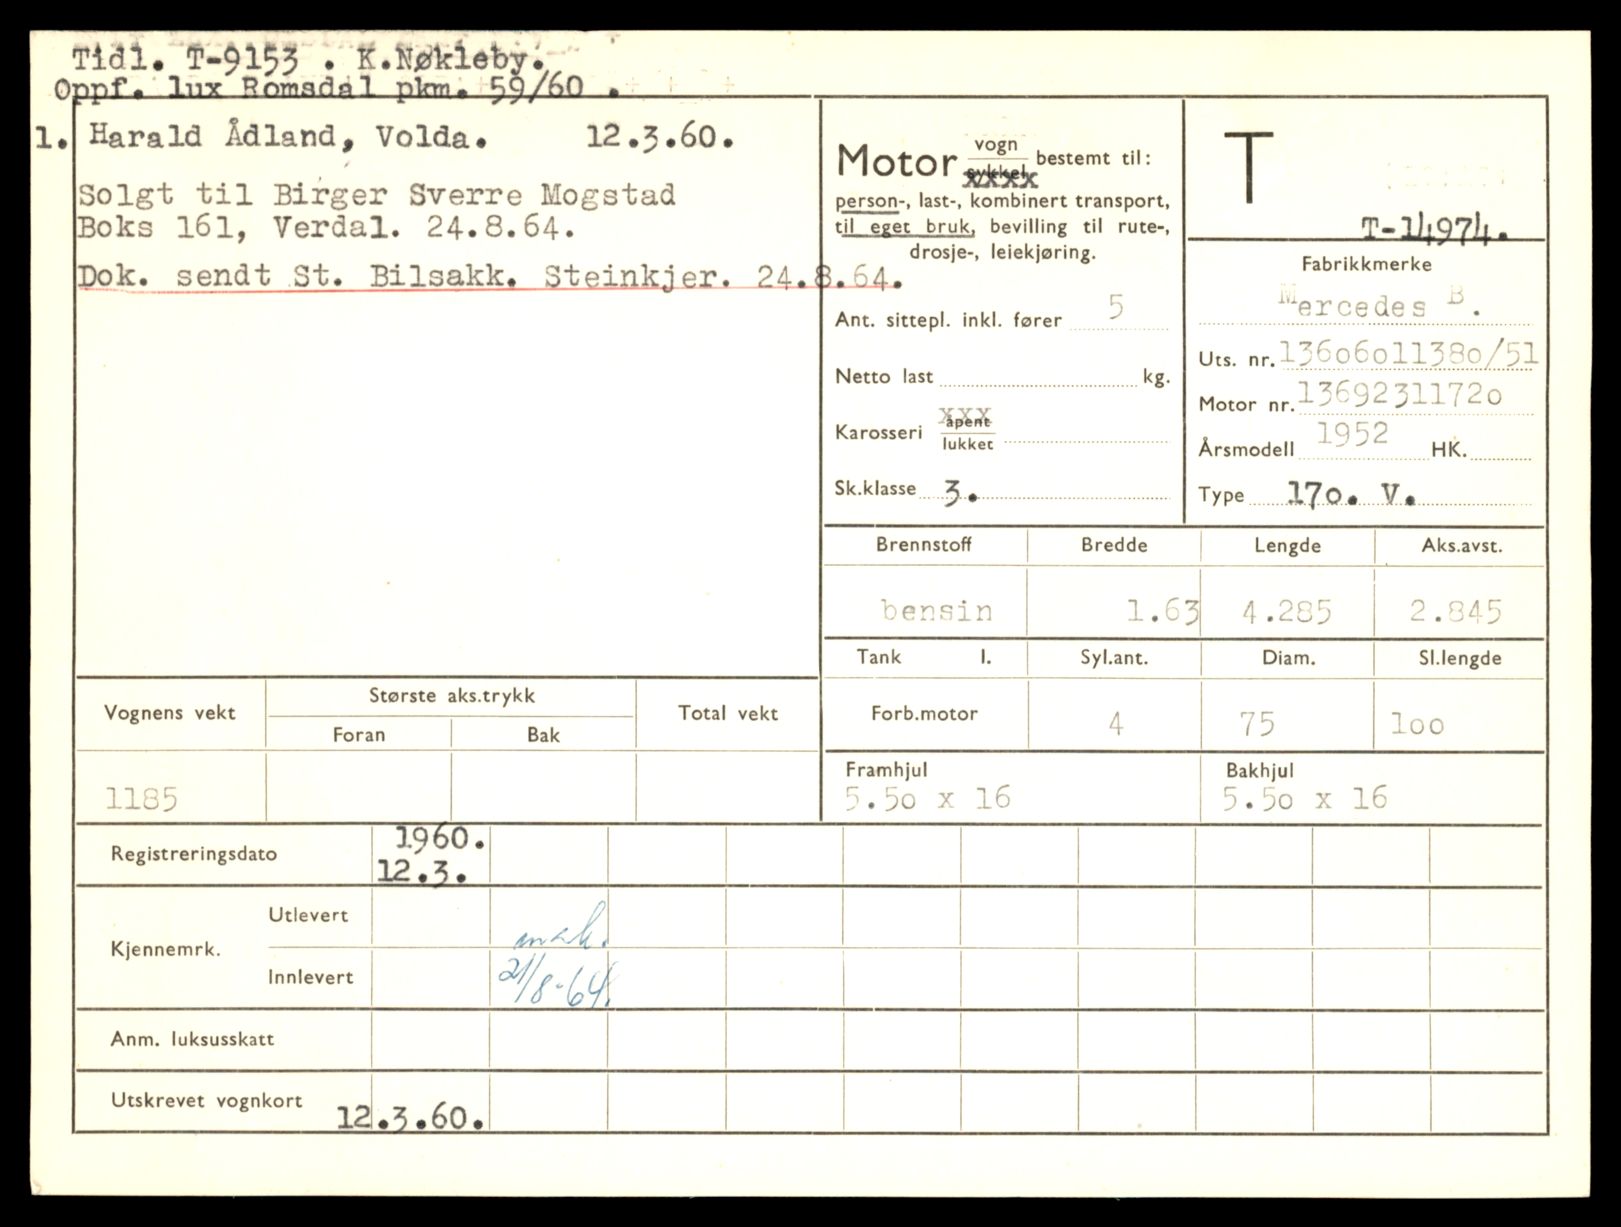 Tidl. T-9153 . K.Nøkleby.
Oppf. lux Romsdal pkm. 59/60 .
1. Harald Ådland, Volda. 12.3.60.
Solgt til Birger Sverre Mogstad
Boks 161, Verdal. 24.8.64.
Dok. sendt St. Bilsakk. Steinkjer. 24.8.64.
Motor vogn sykkel bestemt til:
person-, last-, kombinert transport,
til eget bruk, bevilling til rute-,
drosje-, leiekjøring.
Ant. sittepl. inkl. fører 5
Netto last kg.
Karosseri åpent lukket
Sk.klasse 3.
T
T-14974.
Fabrikkmerke
Mercedes B.
Uts. nr. 13606011380/51
Motor nr. 13692311720
Årsmodell 1952 HK.
Type 170. V.
Brennstoff Bredde Lengde Aks.avst.
bensin 1.63 4.285 2.845
Tank l. Syl.ant. Diam. Sl.lengde
Forb.motor 4 75 100
Framhjul Bakhjul
5.50 x 16 5.50 x 16
Vognens vekt Største aks.trykk Total vekt
Foran Bak
1185
Registreringsdato 1960.
12.3.
Kjennemrk. Utlevert
Innlevert 21/8-64.
Anm. luksusskatt
Utskrevet vognkort 12.3.60.